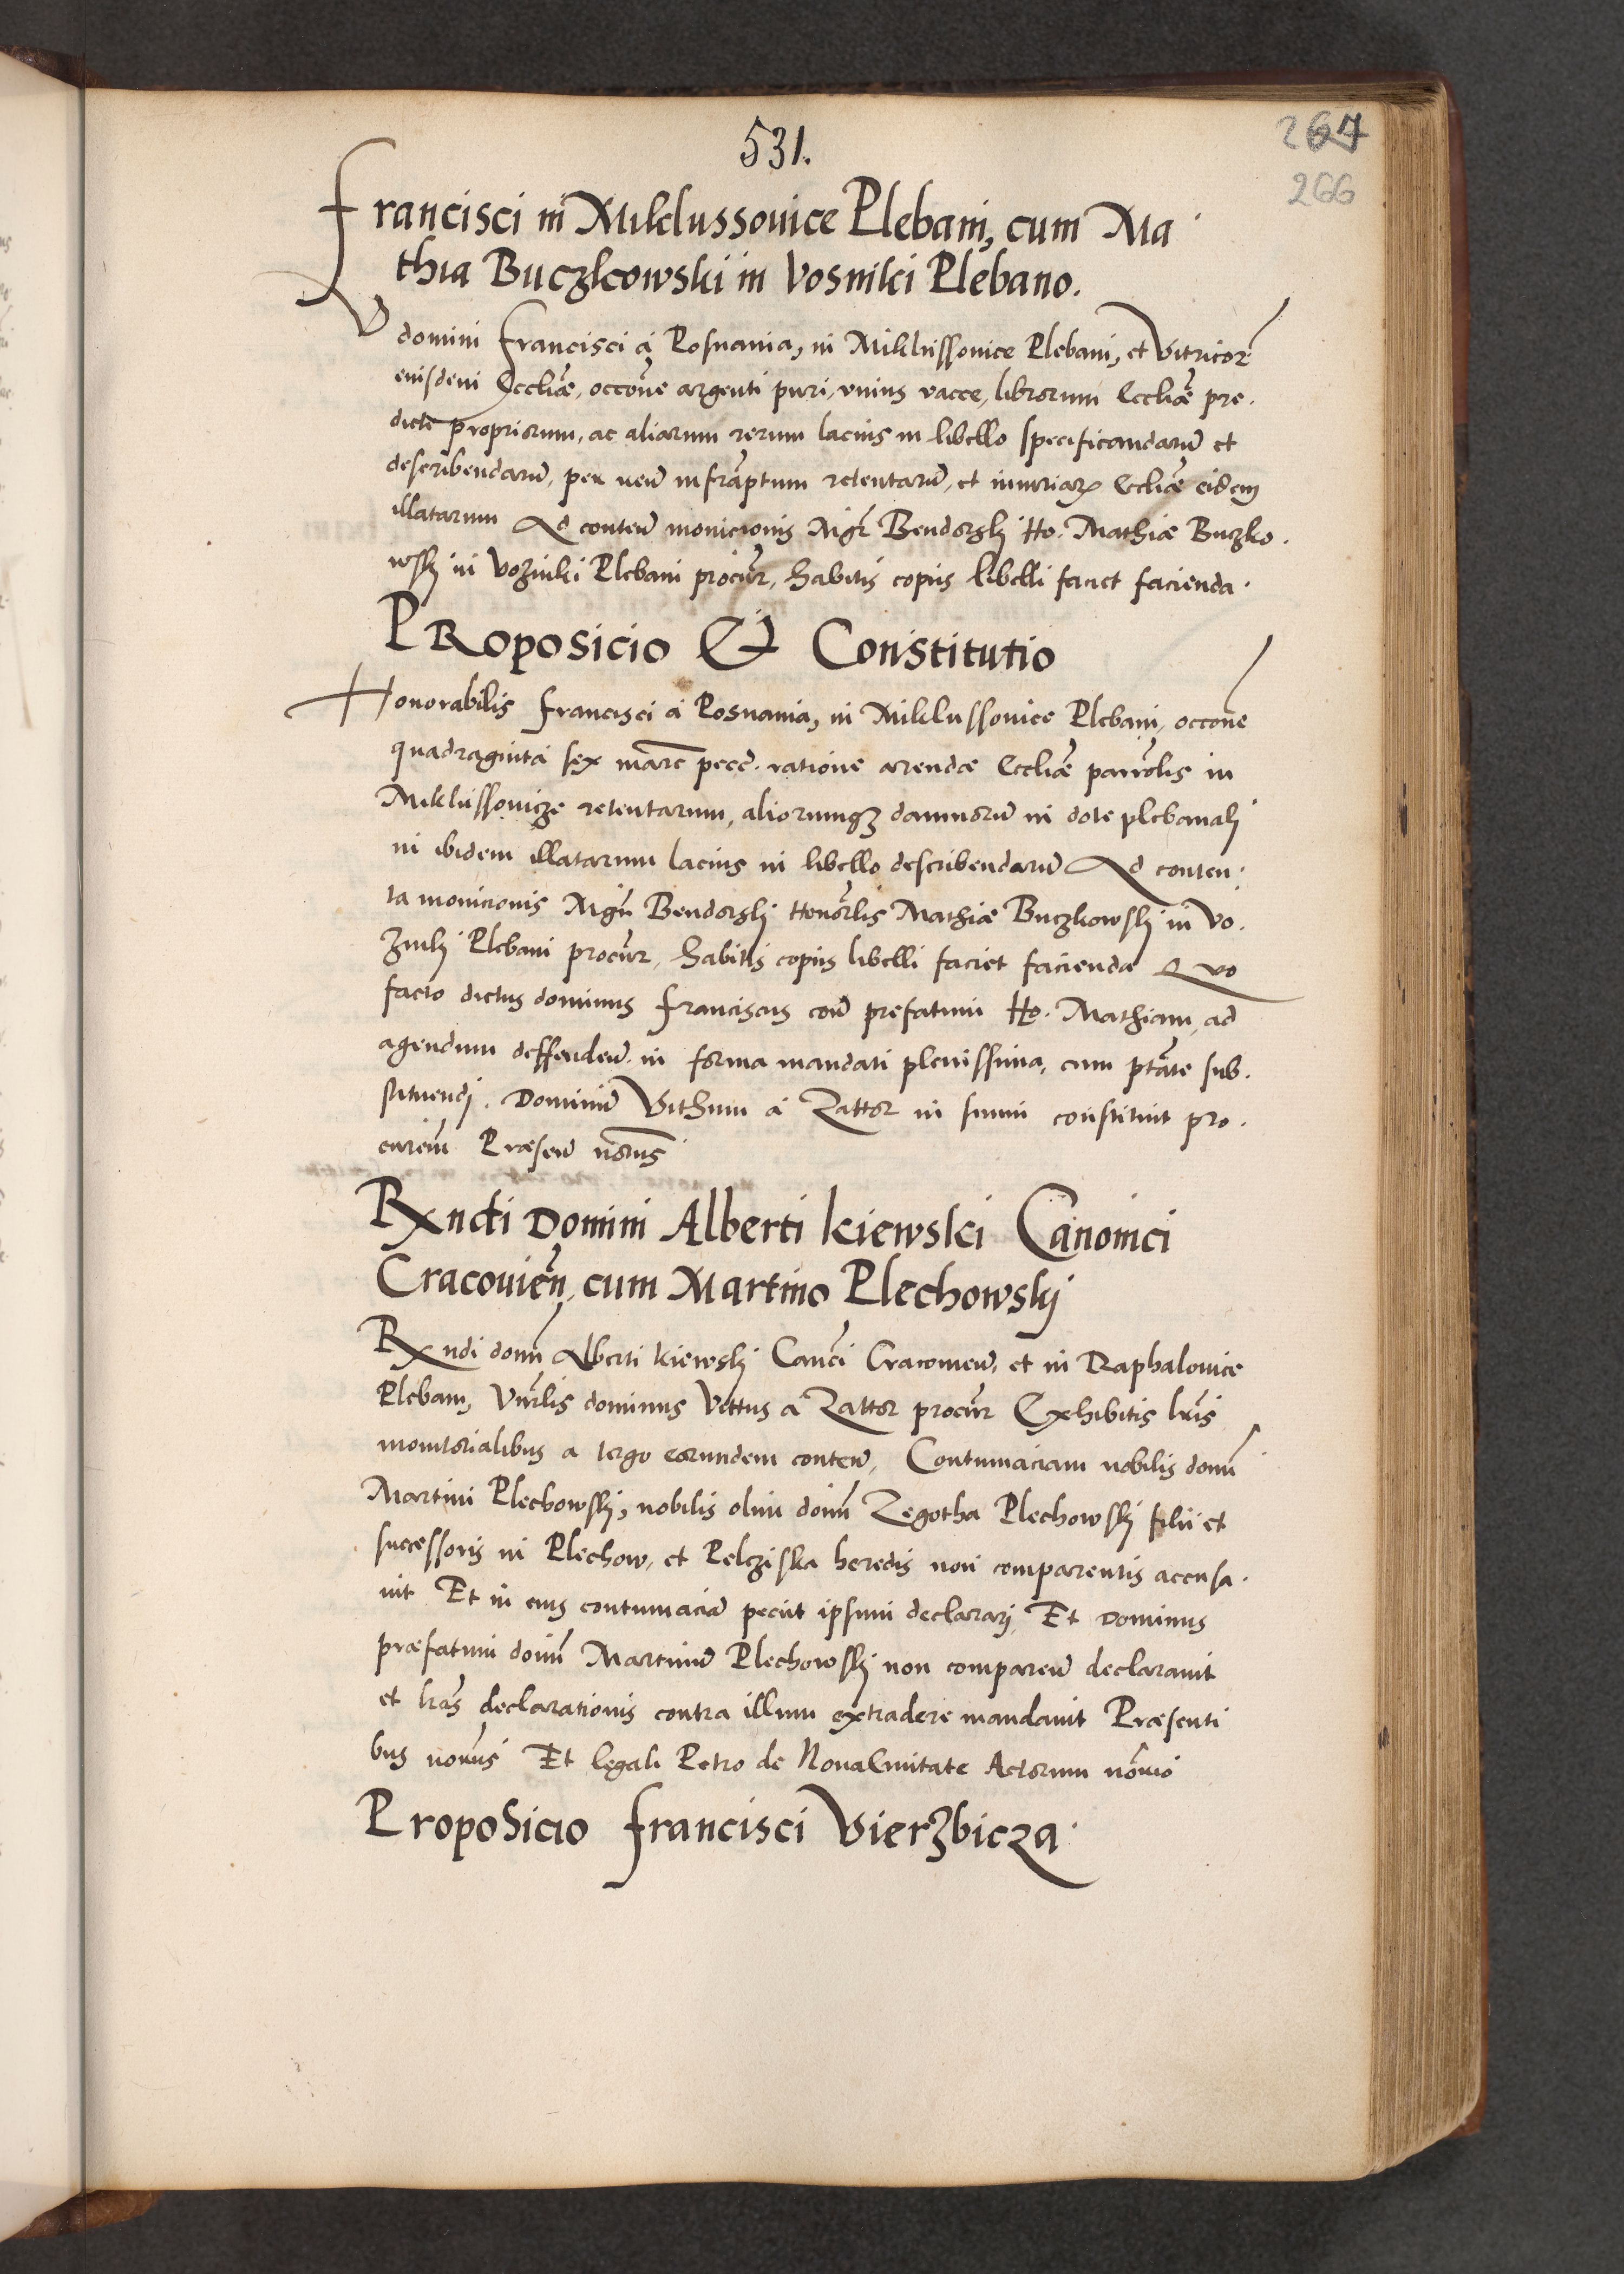 531.
267
266
Francisci in Miklussouice Plebani, cum Ma
thia Buczkowski in Vosniki Plebano.
V domini Francisci a Posnania, in Miklussouice Plebani, et Vitricor
eiusdem Eccliæ, occone argenti puri, vnius vacce, librorum Eccliæ pre.
dicte propriorum, ac aliarum rerum lacius in libello specificandaru et
describendaru, per reu infraptum retentaru, et iniuriar Eccliæ eidem
illatarum Ad conten monicionis Mgr Bendorzski Ho. Mathiæ Buczko.
wski in Vozniki Plebani procur, habitis copiis libelli faciet facienda.
PRoposicio Et Constitutio
Honorabilis Francisci a Posnania, in Miklussouice Plebani, occone
quadraginta sex marc pecc. ratione arendæ Eccliæ parrolis in
Miklussouicze retentarum, aliorumqz damnoru in dote plebanali
in ibidem illatarum lacius in libello describendaru Ad conten.
ta monicionis Mgri Bendorzski Honorlis Mathiæ Buczkowski in Vo.
zniki Plebani procur, habitis copiis libelli faciet facienda Quo
facto dictus dominus Franciscus con prefatum Ho. Mathiam, ad
agendum deffenden. in forma mandati plenissima, cum ptate sub.
stituendi. Dominu Vithum a Zattor in suum constituit pro.
curem Præsen notus
Rxndi Domini Alberti Kiewski Canonici
Cracouien, cum Martino Plechowski
Rxndi domi Alberti Kiewski Canci Cracouien, et in Raphalouice
Plebani, Vnrlis dominus Vittus a Zattor procur Exhibitis lris
monitorialibus a tergo earundem conten, Contumaciam nobilis domi
Martini Plechowski, nobilis olim domi Zegotha Plechowski filii et
successoris in Plechow, et Pelcziska heredis non comparentis accusa.
uit Et in eius contumacia peciit ipsum declarari Et Dominus
præfatum domi Martinu Plechowski non comparen declarauit
et lras declarationis contra illum extradere mandauit Præsenti
bus notus Et legali Petro de NouaCiuitate Actorum notrio
Proposicio Francisci Vierzbicza.